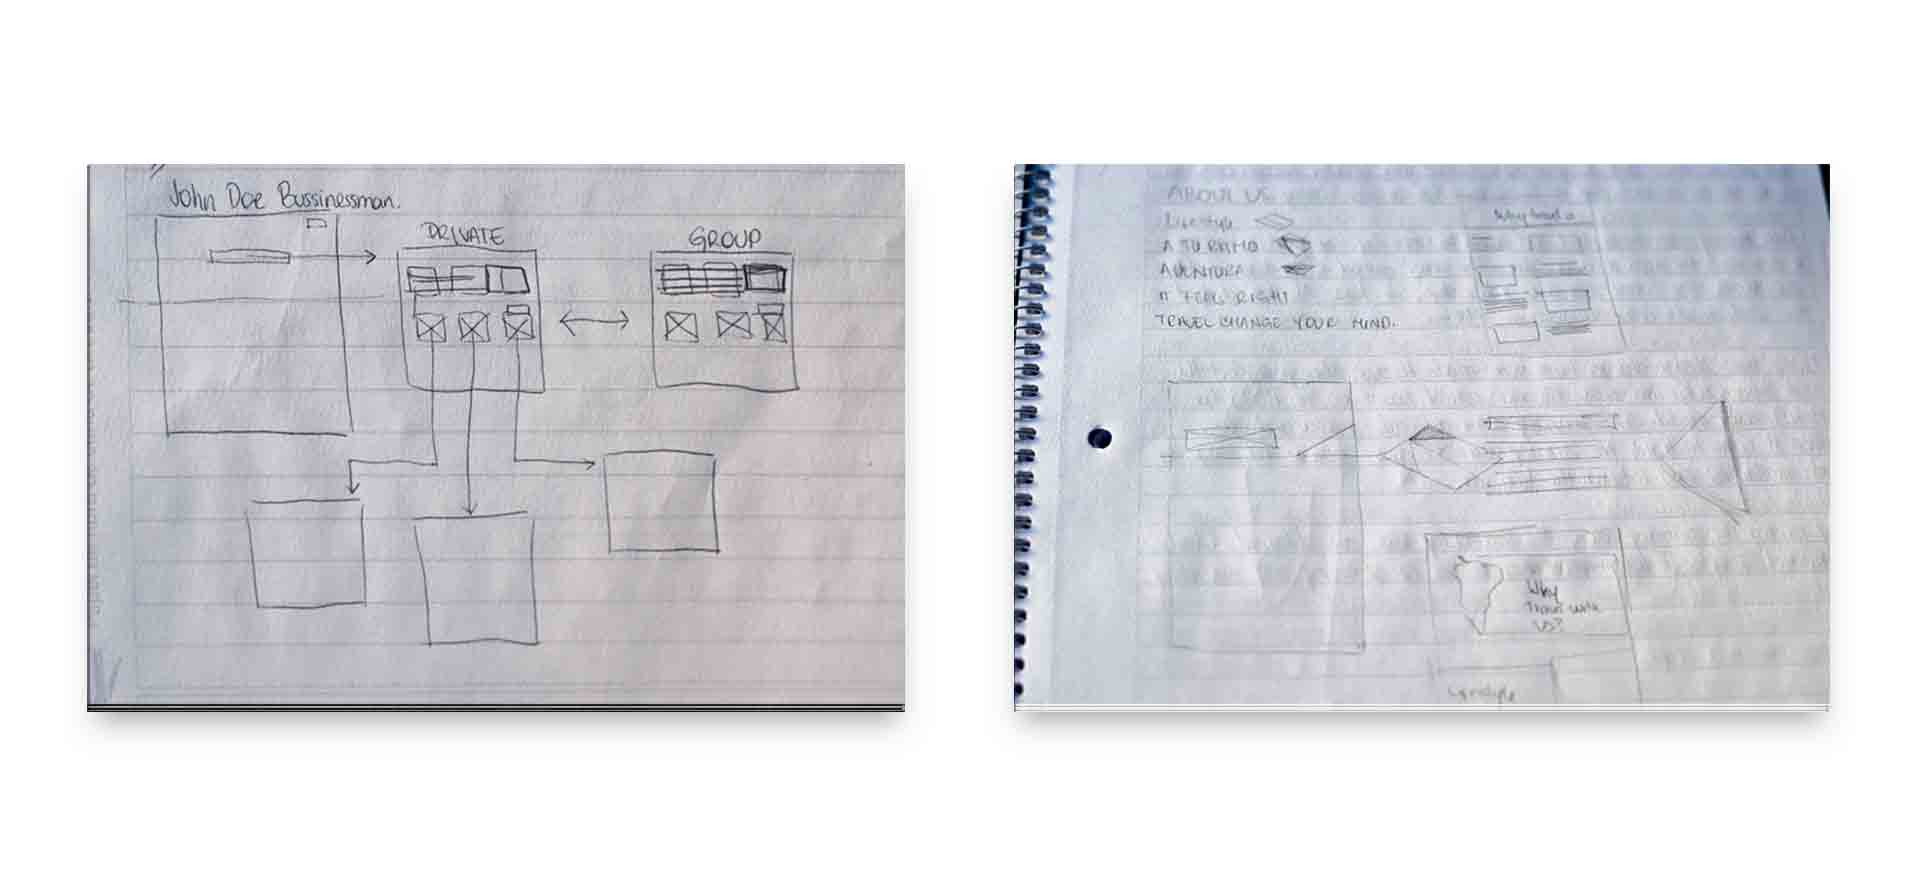 John Doe Bussinessman.
PRIVATE
GROUP
ABOUT US
Lifestyle
A TU RITMO
AVENTURA
IT FEELS RIGHT
TRAVEL CHANGE YOUR MIND.
Why travel
Why
Travel with
US?